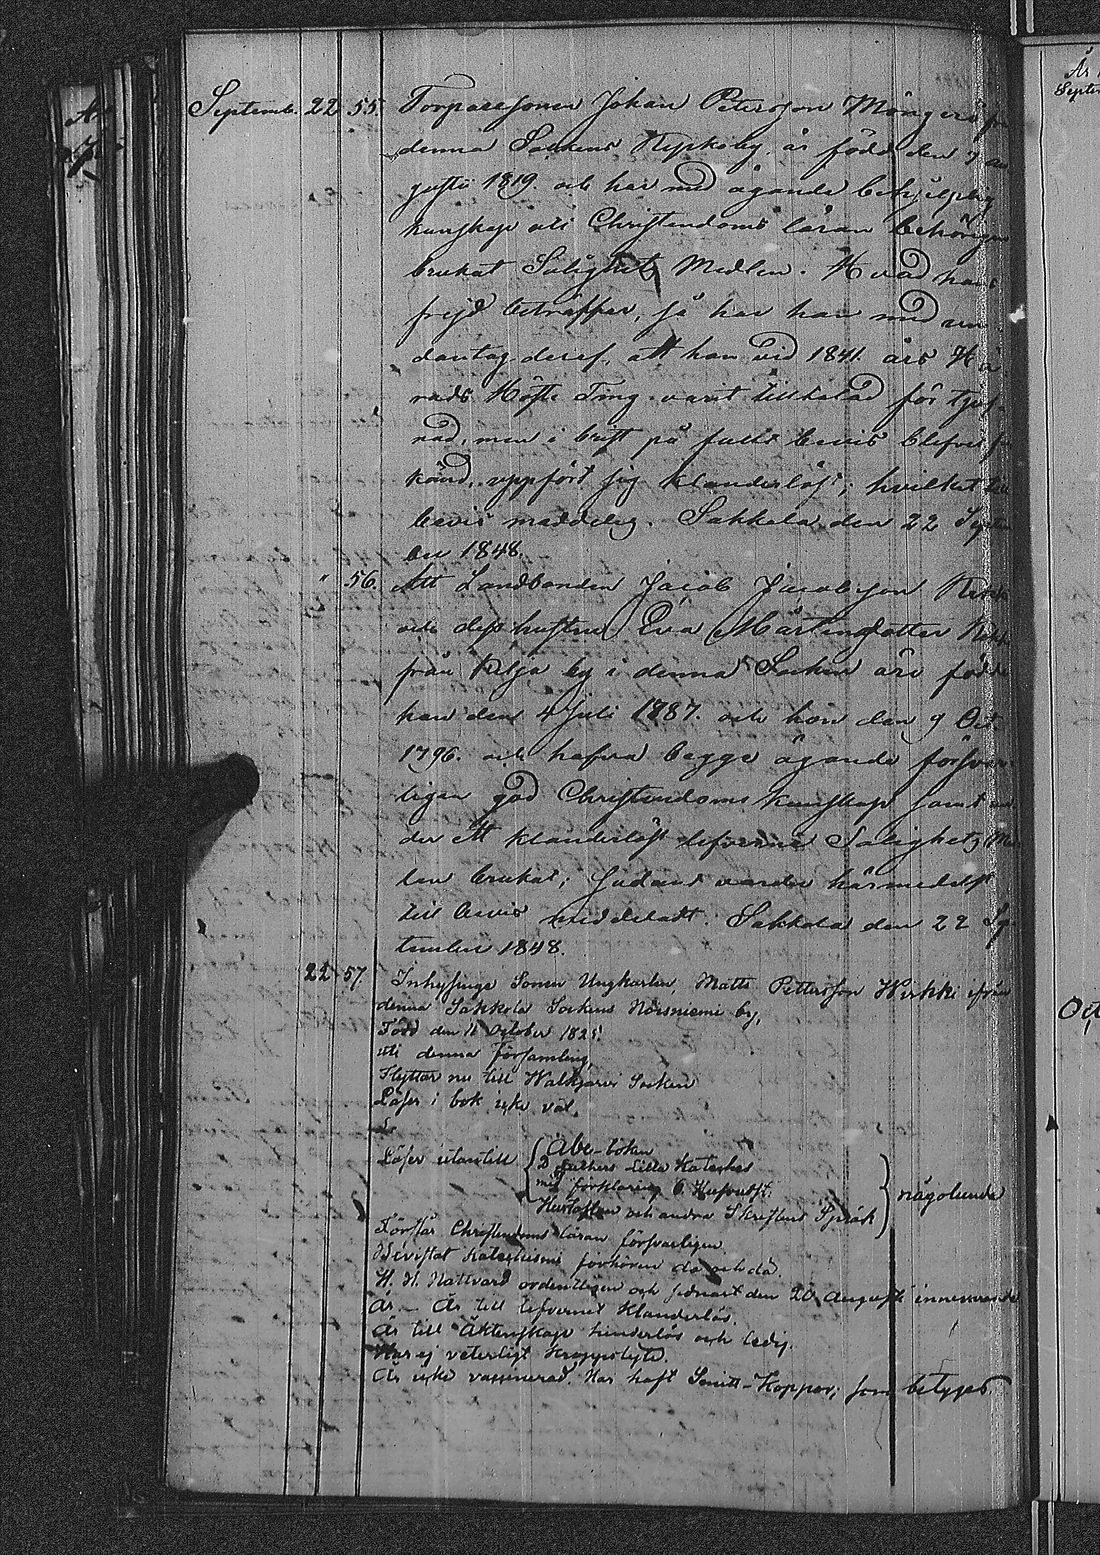 Septemb. 22 55. Torparesonen Johan Petersson Mäng
denna Sockens by, är född den 7 au
gusti 1819. och har med ägande
kunskap uti Christendoms läran behörigen
brukat Salighets Medlen. Hvad hans
frejd beträffar, så har han med un
dantag deraf, att han vid 1841 års Hä
rads Höste Ting varit tilltalad för tjuf-
nad, men i brist på fullt bevis blifvit
känd, uppfört sig klanderlöst; hvilket till
bevis meddelas. Sakkola den 22 Septem
ber 1848.
" 56. Att Landbonden Jacob Jacobsson
och dess hustru Eva Mårtensdotter
från by i denna Socken äro födde
han den 4 Juli 1787. och hon den 9 Oct.
1796. och hafva begge ägande försvar
ligen god Christendoms kunskap samt un
der ett klanderlöst lefverne Salighets Me
len brukat; sådant varder härmedelst
till bevis meddeladt. Sakkola den 22 Sep
tember 1848.
22 57. Inhysinge Sonen Ungkarlen Matts Pettersson Kirkki ifrån
denna Sakkola Sockens by,
Född den October
uti denna Församling,
Flyttar nu till Walkjärvi Socken
Läser i bok icke väl.
Läser utantill Abc-boken
D Luthers lilla Kateches
med förklaring 6 Hufvudst.
Hustaflan och andra Skriftens Språk
någolunda
Förstår Christendoms läran försvarligen
Bevistat Katechismi förhören då och då.
H. H. Nattvard ordentligen och sednast den 20 Augusti innevarande
År - Är till lefvernet Klanderlös.
Är till Äktenskap hinderlös och ledig.
Har ej veterligt Kroppslyte.
Är icke vaccinerad. Har haft Smitt-Koppor; som betygas
År
Septem
Oct